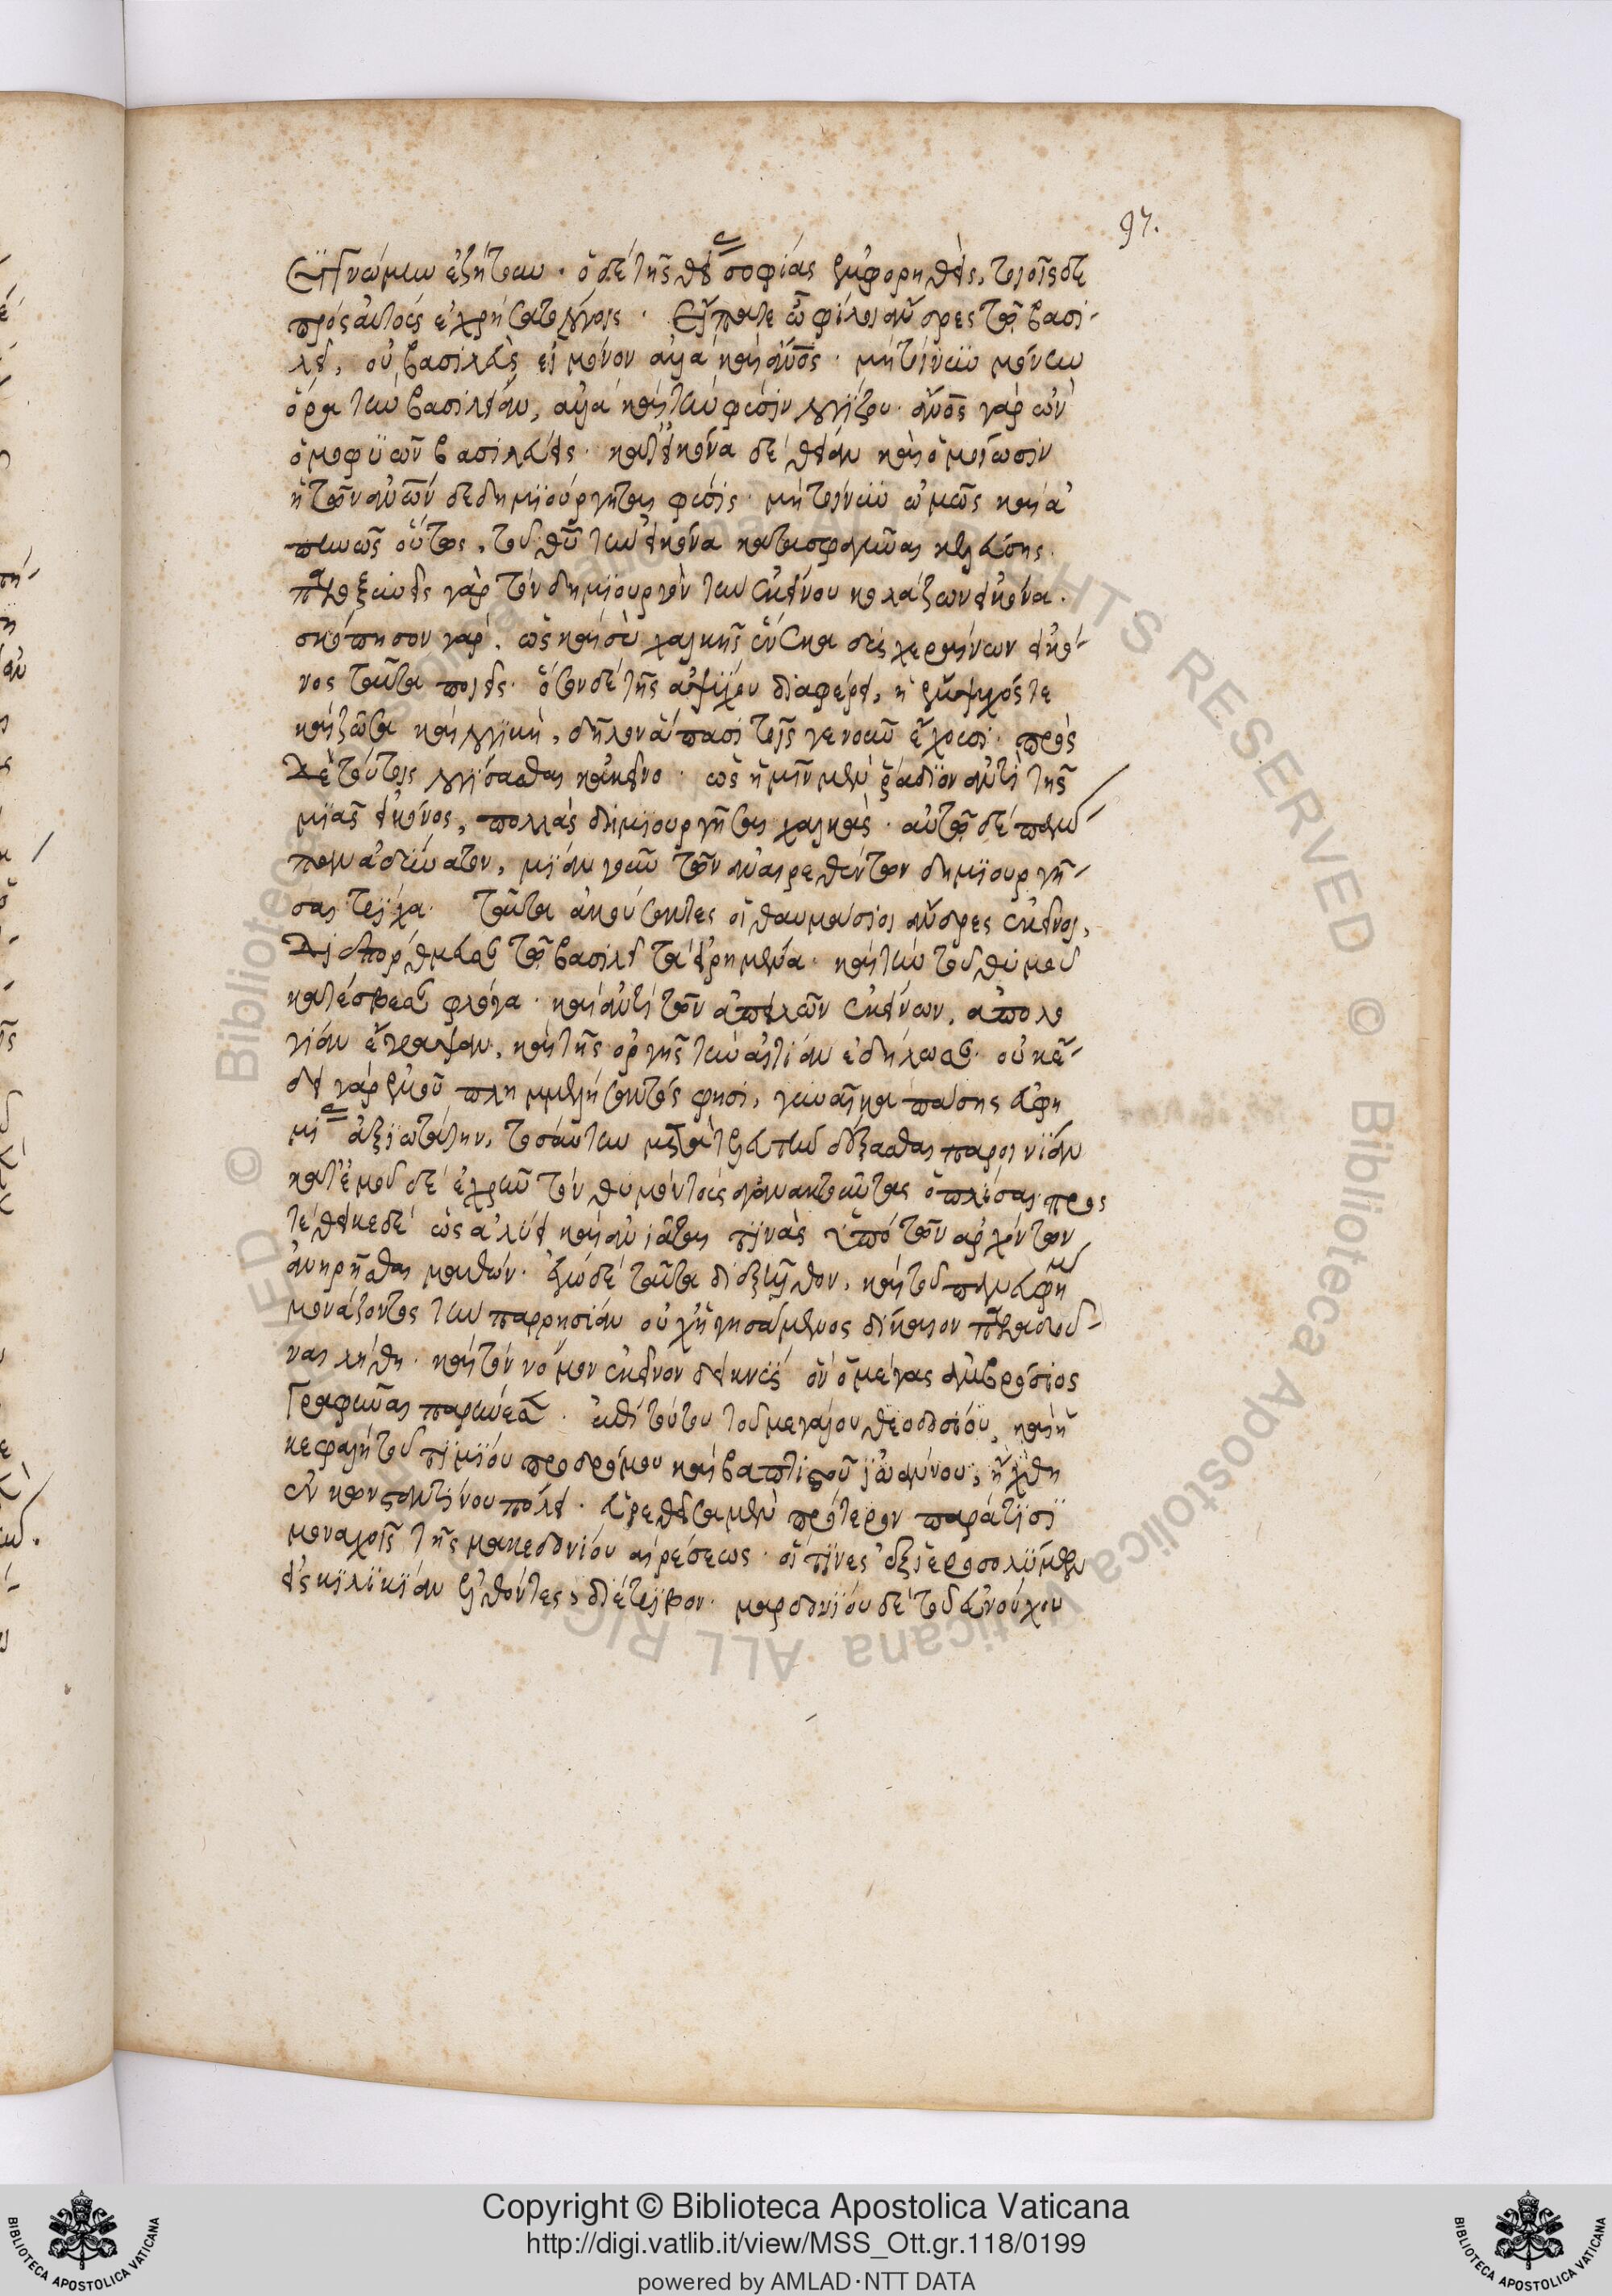 97.
συγγνώμην ἐζήτουν. ὁ δὲ τῆς θείας σοφίας ἐμφορηθεὶς, τοιοῖσδε
πρὸς αὐτοὺς ἐχρήσατο λόγοις. εἴπατε ὦ φίλοι ἄνδρες τῷ βασι-
λεῖ, οὐ βασιλεὺς εἶ μόνον ἀλλὰ καὶ ἄνος. μὴ τοίνυν μόνην
ὅρα τὴν βασιλείαν, ἀλλὰ καὶ τὴν φύσιν λογίζου. ἄνος γὰρ ὢν
ὁμοφυῶν βασιλεύεις. κατ' εἰκόνα δὲ θείαν καὶ ὁμοίωσιν
ἡ τῶν ἀνων δεδημιούργηται φύσις. μὴ τοίνυν ὠμῶς καὶ ἀ
πηνῶς οὕτως, τοῦ θῦ τὴν εἰκόνα κατασφαγῆναι κελεύσης.
παροξυνεῖς γὰρ τὸν δημιουργὸν τὴν ἐκείνου κολάζων εἰκόνα.
σκόπησον γὰρ, ὡς καὶ σὺ χαλκῆς ἕνεκα δυσχεραίνων εἰκό-
νος ταῦτα ποιεῖς. ὅσον δὲ τῆς ἀψύχου διαφέρει, ἡ ἔμψυχός τε
καὶ ζῶσα καὶ λογικὴ, δῆλον ἅπασι τοῖς γε νοῦν ἔχουσι. πρὸς
δὲ τούτοις λογίσασθαι κἀκεῖνο. ὡς ἡμῖν μὲν ῥάδιον ἀντὶ τῆς
μιᾶς εἰκόνος, πολλὰς δημιουργῆσαι χαλκᾶς. αὐτῷ δὲ παν-
παν ἀδύνατον, μίαν γοῦν τῶν ἀναιρεθέντων δημιουργῆ-
σαι τρίχα. ταῦτα ἀκούσαντες οἱ θαυμάσιοι ἄνδρες ἐκεῖνοι,
διεπόρθμευσαν τῷ βασιλεῖ τὰ εἰρημένα. καὶ τὴν τοῦ θυμοῦ
κατέσβεσαν φλόγα. καὶ ἀντὶ τῶν ἀπειλῶν ἐκείνων, ἀπολο
γίαν ἔγραψαν, καὶ τῆς ὀργῆς τὴν αἰτίαν ἐδήλωσαν. οὐκ ἔ-
δει γὰρ ἐμοῦ πλημμελήσαντός φησι, γυναῖκα πάσης εὐφη
μίας ἀξιωτάτην, τοσαύτην μετὰ τελευτὴν δέξασθαι παροινίαν
κατ' ἐμοῦ δὲ ἐχρῆν τὸν θυμὸν τοὺς ἀγανακτοῦντας ὁπλίσαι. προς
τέθεικε δὲ ὡς ἀλύει καὶ ἀνιᾶται τινὰς ὑπὸ τῶν ἀρχόντων
ἀνῃρῆσθαι μαθών. ἐγὼ δὲ ταῦτα διεξῆλθον, καὶ τοῦ πανευφήμου
μονάζοντος τὴν παρρησίαν οὐχ ἡγησάμενος δίκαιον παραδοῦ-
ναι λήθῃ. καὶ τὸν νόμον ἐκεῖνον δεικνὺς ὃν ὁ μέγας ἀμβρόσιος
γραφῆναι παρῄνεσεν. ἐπὶ τούτου τοῦ μεγάλου θεοδοσίου, καὶ ἡ
κεφαλὴ τοῦ τιμίου προδρόμου καὶ βαπτιστοῦ ἰωάννου, ἤχθη
ἐν κονσταντίνου πόλει. εὑρεθεῖσα μὲν πρότερον παρά τισι
μοναχοῖς τῆς μακεδονίου αἱρέσεως. οἵ τινες ἐξ ἱεροσολύμων
εἰς κιλικίαν ἐλθόντες, διέτριβον. μαρδονίου δὲ τοῦ εὐνούχου